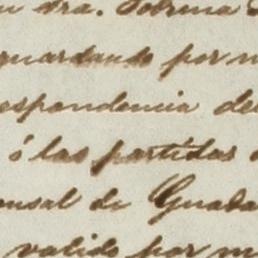 dra. Sobrina
guardando por
espondencia de
ó las partidas
onsal de Guada
valido por m